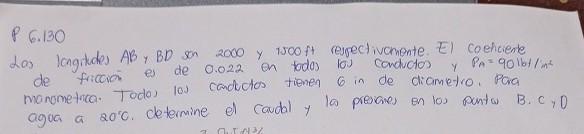 P 6.130
Las longitudes AB y BD son 2000 y 1500 ft respectivamente. El coeficiente
de fricción es de 0.022 en todos los conductos y PA = 90 lbf/in²
manometrica. Todos los conductos tienen 6 in de diametro. Para
agua a 20°C. determine el caudal y las presiones en los puntos B. C, y D